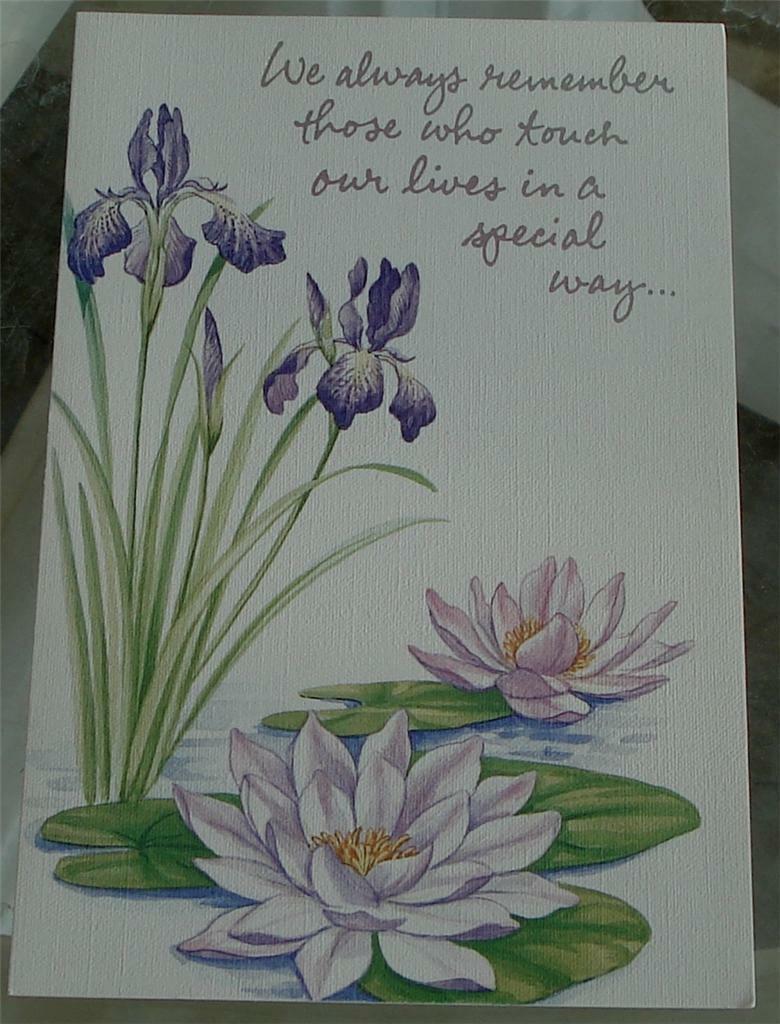 We always remember
those who touch
our lives in a
special
way...